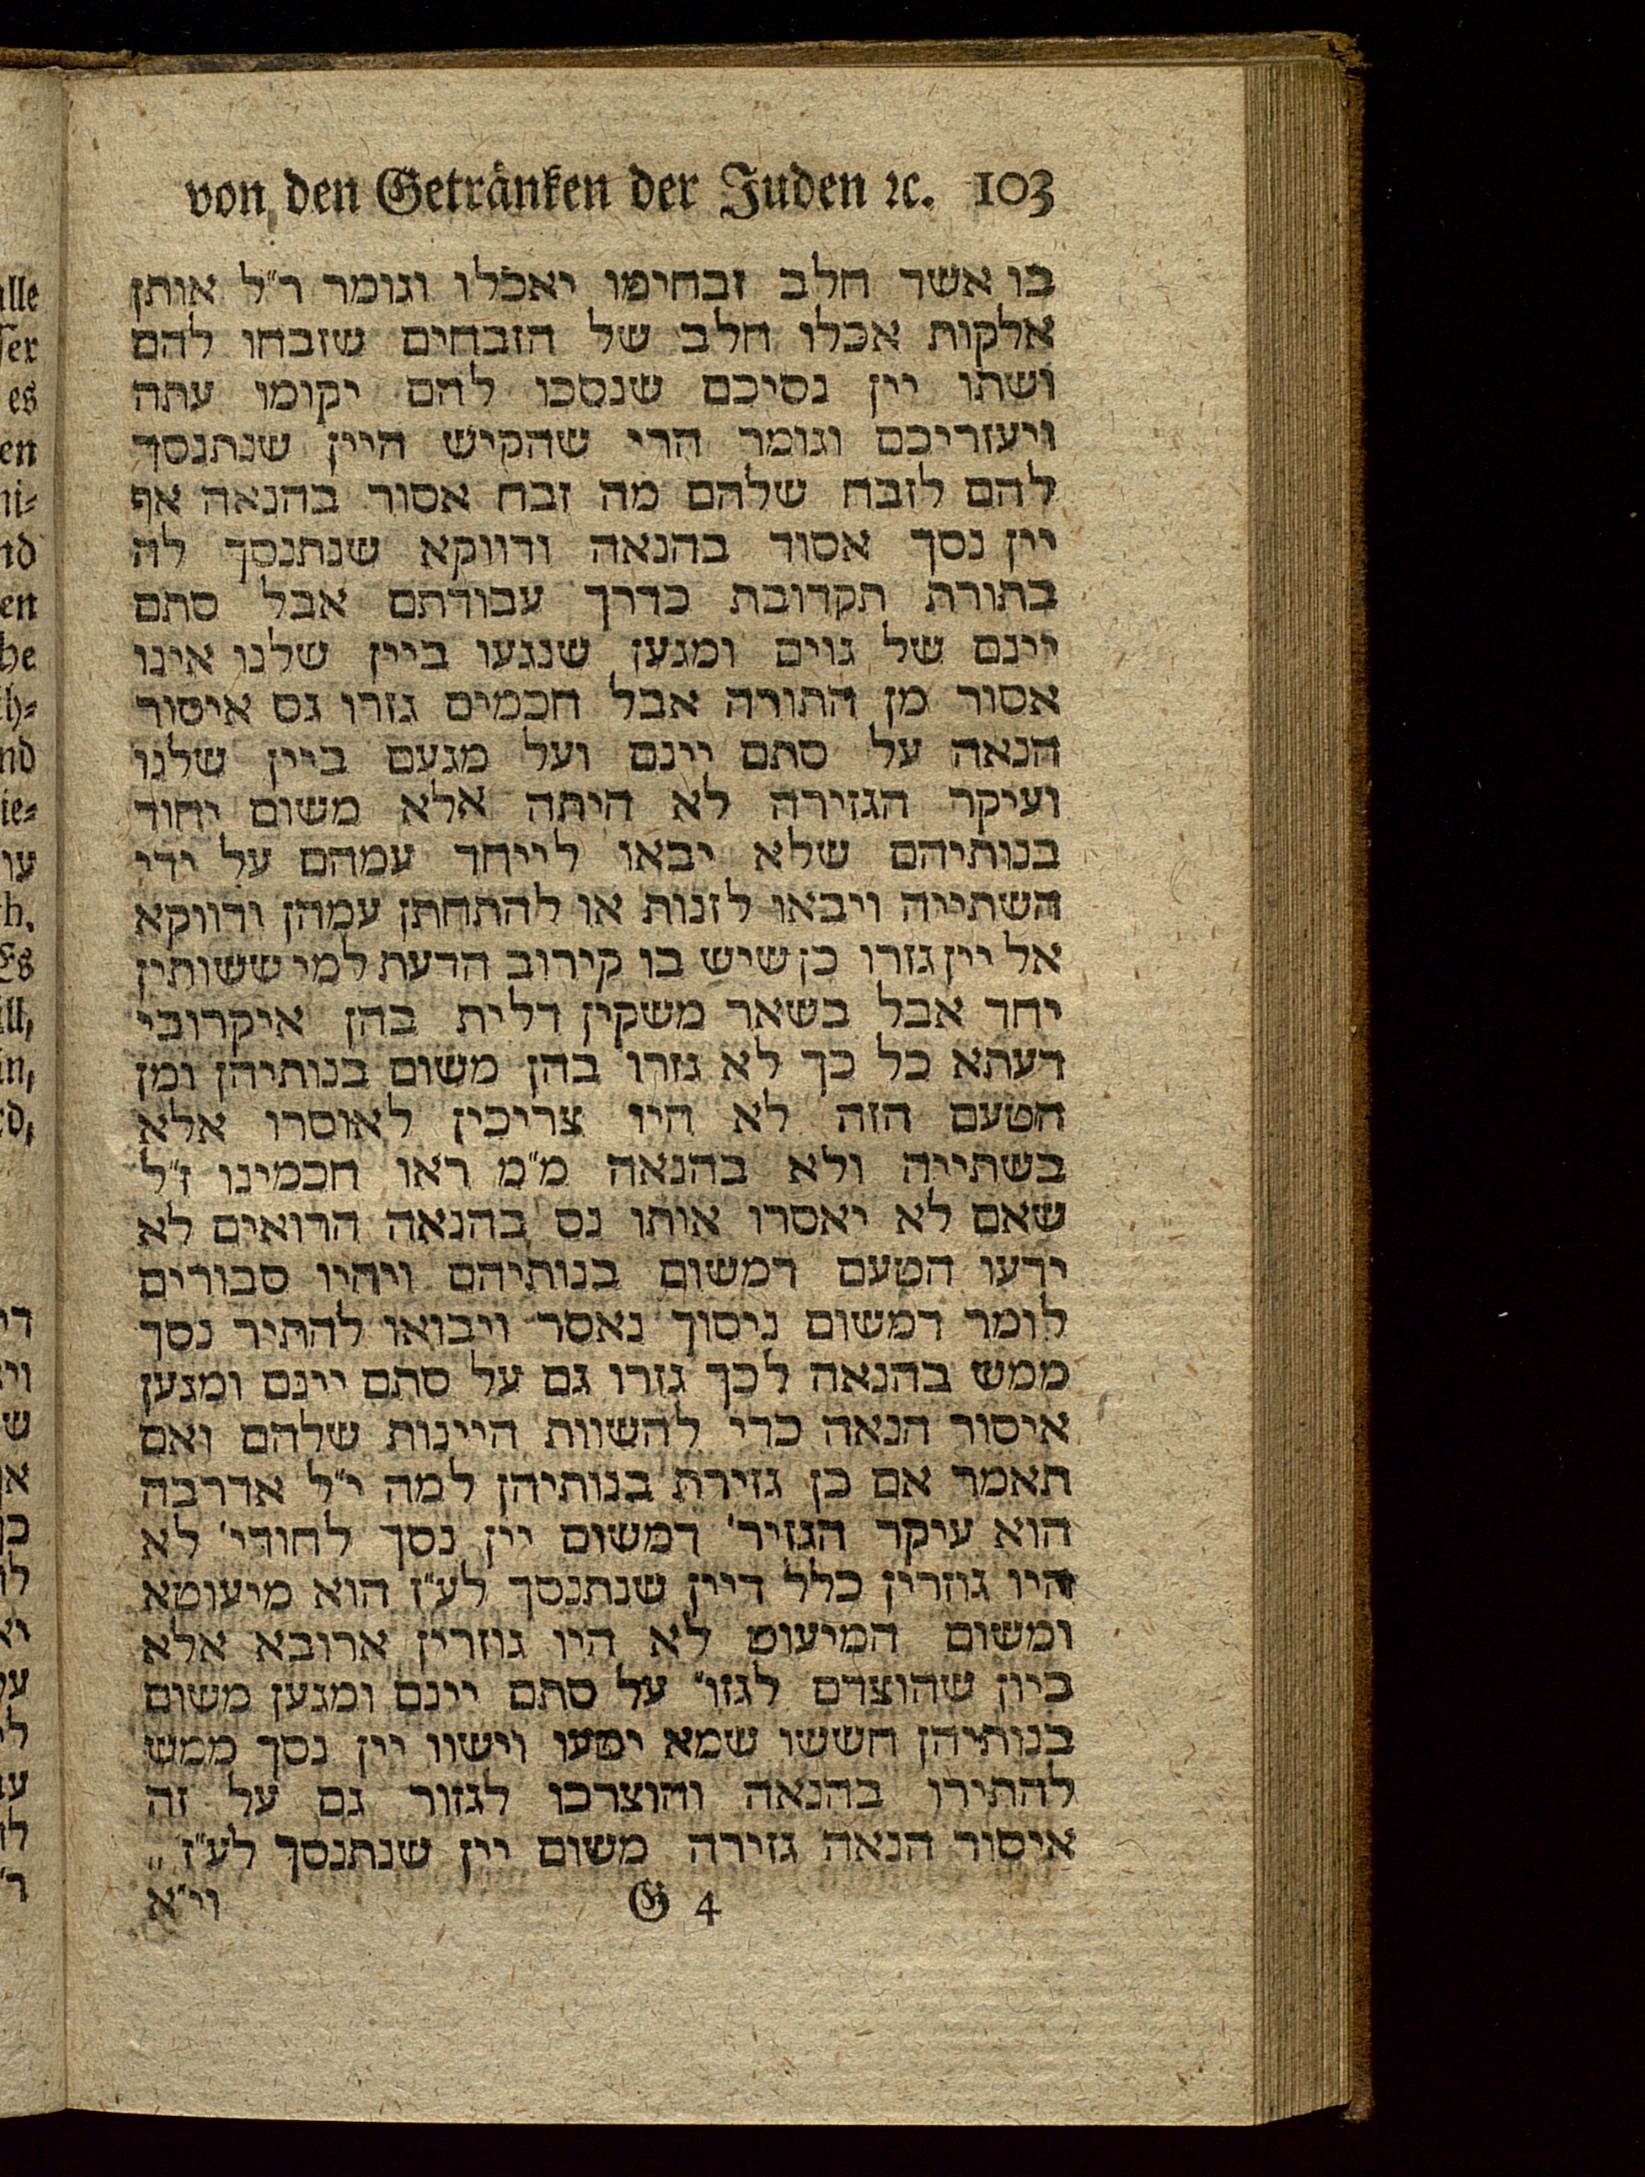 von den Getränken der Juden ꝛc. 103
בו אשר חלב זבחימו יאכלו וגומר ר״ל אותן
אלקות אכלו חלב של הזבחים שזבחו להם
ושתו יין נסיכם שנסכו להם יקומו עתה
ויעזריכם וגומר הרי שהקיש היין שנתנסך
להם לזבח שלהם מה זבח אסור בהנאה אף
יין נסך אסור בהנאה ודווקא שנתנסך לה
בתורת תקרובת כדרך עבודתם אבל סתם
יינם של גוים ומגען שנגעו ביין שלנו אינו
אסור מן התורה אבל חכמים גזרו גם איסור
הנאה על סתם יינם ועל מגעם ביין שלנו
ועיקר הגזירה לא היתה אלא משום יחוד
בנותיהם שלא יבאו לייחד עמהם על ידי
השתייה ויבאו לזנות או להתחתן עמהן ודווקא
אל יין גזרו כן שיש בו קירוב הדעת למי ששותין
יחד אבל בשאר משקין דלית בהן איקרובי
דעתא כל כך לא גזרו בהן משום בנותיהן ומן
הטעם הזה לא היו צריכין לאוסרו אלא
בשתייה ולא בהנאה מ״מ ראו חכמינו ז״ל
שאם לא יאסרו אותו גם בהנאה הרואים לא
ידעו הטעם דמשום בנותיהם ויהיו סבורים
לומר דמשום ניסוך נאסר ויבואו להתיר נסך
ממש בהנאה לכך גזרו גם על סתם יינם ומגען
איסור הנאה כדי להשוות היינות שלהם ואם
תאמר אם כן גזירת בנותיהן למה י״ל אדרבה
הוא עיקר הגזיר׳ דמשום יין נסך לחודי׳ לא
היו גוזרין כלל דיין שנתנסך לע״ז הוא מיעוטא
ומשום המיעוט לא היו גוזרין ארובא אלא
כיון שהוצרם לגזו״ על סתם יינם ומגען משום
בנותיהן חששו שמא יטעו וישוו יין נסך ממש
להתירו בהנאה והוצרכו לגזור גם על זה
איסור הנאה גזירה משום יין שנתנסך לע״ז „
G 4 וי״א